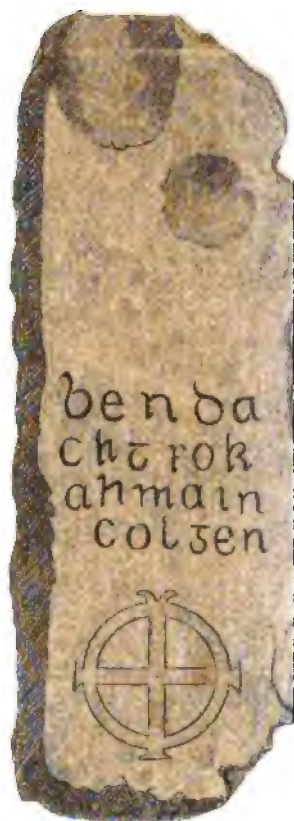 benda
cht for
anmain
colgen